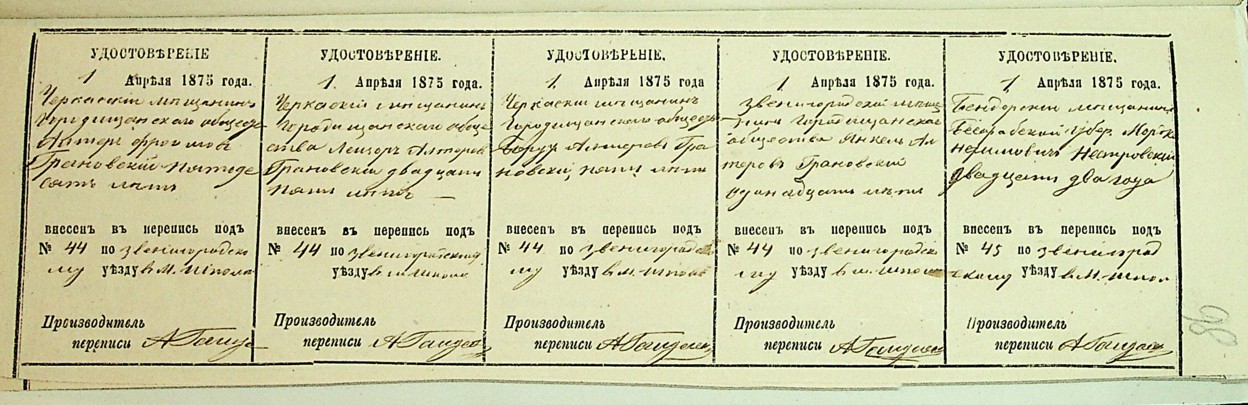 УДОСТОВѢРЕНІЕ
1 Апрѣля 1875 года.
Черкаский мѣщанинъ
Городищанского общест
Алтеръ
Грановский пятьде
сятъ лѣтъ
внесенъ въ перепись подъ
№ 44 по звенигородско
му уѣзду в м. Шпола
Производитель
переписи
УДОСТОВѢРЕНІЕ.
1 Апрѣля 1875 года.
Черкаский мѣщанинъ
Городищанского обще
ства Лейзоръ Алтеровъ
Грановский двадцати
пяти лѣтъ
внесенъ въ перепись подъ
№ 44 по звенигородскому
уѣзду в м. Шпола
Производитель
переписи
УДОСТОВѢРЕНІЕ.
1 Апрѣля 1875 года
Черкаский мѣщанинъ
Городищанского общест
Борух Алтеровъ Гра
новский, пяти лѣтъ
внесенъ въ перепись подъ
№ 44 по звенигородско
му уѣзду в м. Шпола
Производитель
переписи
УДОСТОВѢРЕНІЕ.
1 Апрѣля 1875 года.
Звенигородский мѣща
нинъ Городищанского
общества Янкель Ал
теровъ Грановский
одинадцати лѣтъ
внесенъ въ перепись подъ
№ 44 по звенигородско
му уѣзду в м. Шпола
Производитель
переписи
УДОСТОВѢРЕНІЕ.
1 Апрѣля 1875 года.
Бендерский мѣщанинъ
Бесарабской губер. Мортко
Нестровский
двадцати два года
внесенъ въ перепись подъ
№ 45 по звенигород
скому уѣзду в м. Шпола
Производитель
переписи